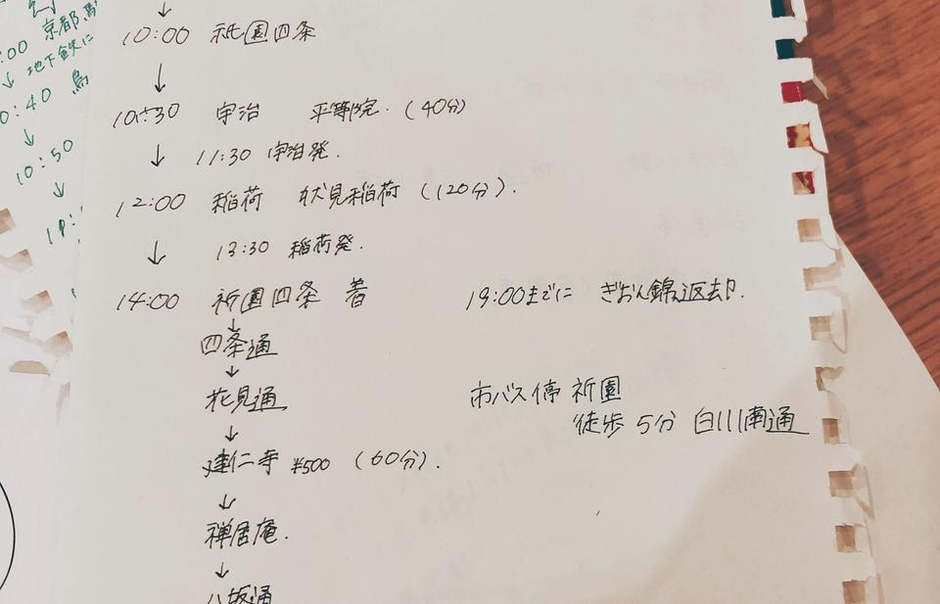 :00 京都駅
地下鉄に
0:40 烏
10:50
10:00 祇園四条
10:30 宇治 平等院. (40分)
11:30 宇治発.
12:00 稲荷 伏見稲荷 (120分).
13:30 稲荷発.
14:00 祇園四条 着
19:00までに ぎおん錦返却.
四条通
花見通
市バス停 祇園
徒歩 5分 白川南通
建仁寺 ¥500 (60分).
禅居庵.
八坂通